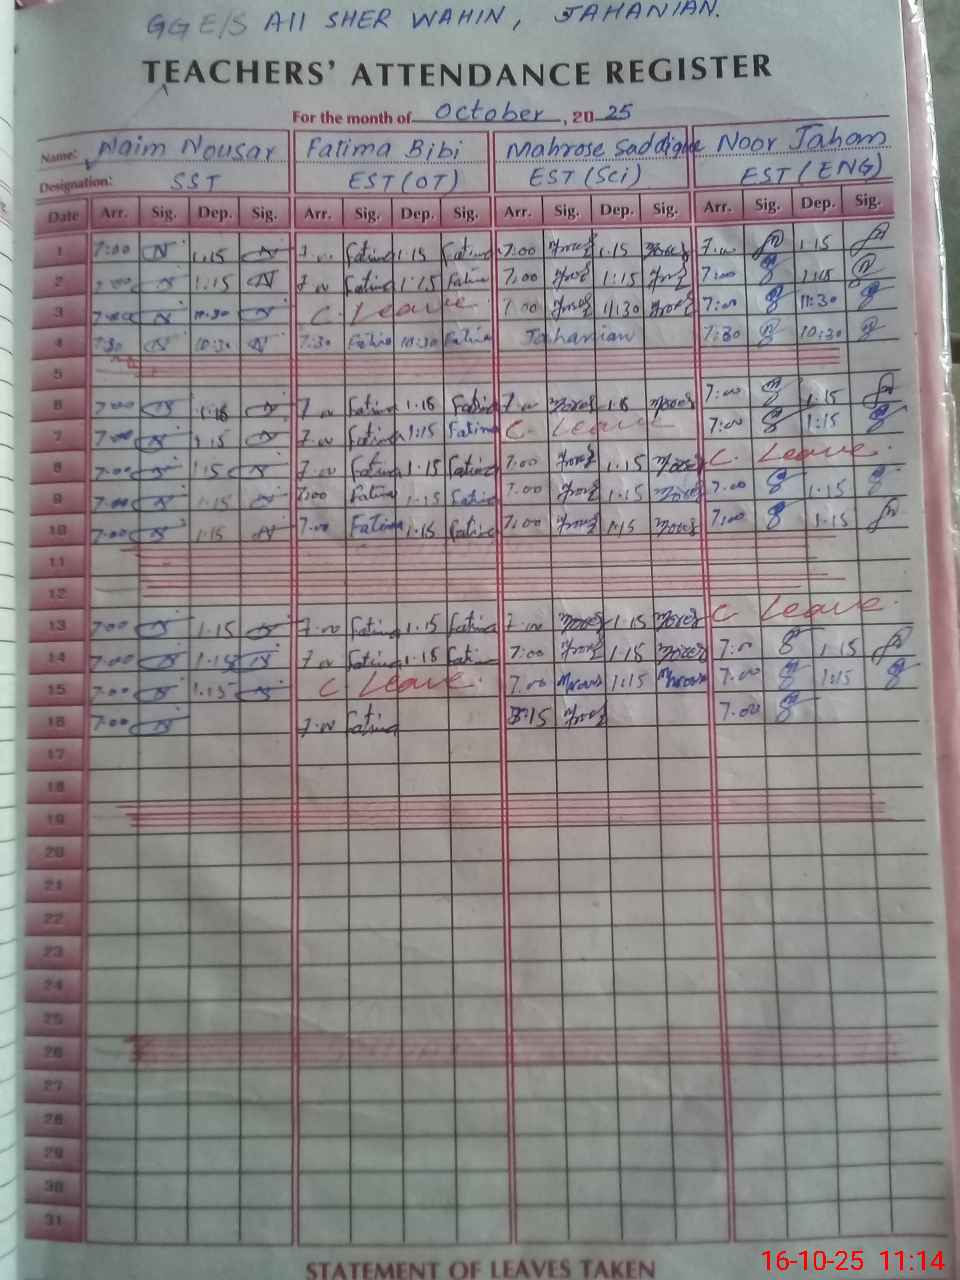 GGE/S All SHER WAHIN, JAHANIAN.
TEACHERS' ATTENDANCE REGISTER
For the month of October, 20 25
Name: Naim Nousar Fatima Bibi Mahrose Saddique Noor Jaham
Designation: SST EST (OT) EST (Sci) EST (ENG)
Date Arr. Sig. Dep. Sig. Arr. Sig. Dep. Sig. Arr. Sig. Dep. Sig. Arr. Sig. Dep. Sig.
1 7:00 N 1.15 N 7.00 Fatima 1.15 Fatima 7.00 1.15 7.00 1.15
2 7:00 N 1:15 N 7.00 Fatima 1.15 Fatima 7.00 1:15 7:00 1:15
3 7:00 N 10.30 N C. Leave 7.00 11:30 7:00 11:30
4 7:30 N 10:30 N 7:30 Fatima 10:30 Fatima Jahanian 7:30 10:30
5
6 7:00 N 1.15 N 7.00 Fatima 1.15 Fatima 7.00 1.15 7:00 1.15
7 7:00 N 1.15 N 7.00 Fatima 1:15 Fatima C. Leave 7:00 1:15
8 7:00 N 1.15 N 7.00 Fatima 1.15 Fatima 7.00 1.15 C. Leave
9 7:00 N 1.15 N 7:00 Fatima 1.15 Fatima 7.00 1.15 7.00 1.15
10 7:00 N 1.15 N 7.00 Fatima 1.15 Fatima 7.00 1.15 7:00 1.15
11
12
13 7:00 N 1.15 N 7.00 Fatima 1.15 Fatima 7.00 1.15 C Leave.
14 7:00 N 1.15 N 7.00 Fatima 1.15 Fatima 7:00 1.15 7:00 1.15
15 7:00 N 1.15 N C Leave. 7.00 1:15 7.00 1:15
16 7:00 N 7.00 Fatima 8:15 7.00
17
18
19
20
21
22
23
24
25
26
27
28
29
30
31
STATEMENT OF LEAVES TAKEN
16-10-25 11:14